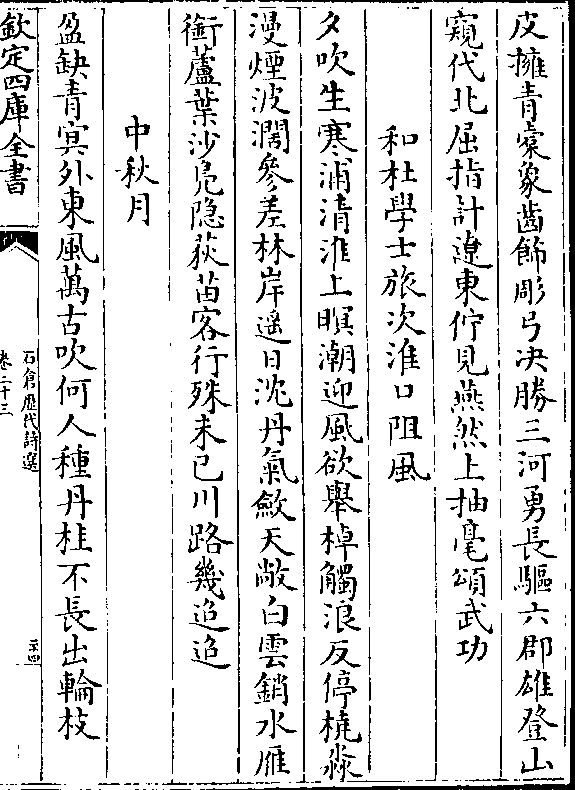 皮擁青㯱象齒飾彫弓决勝三河勇長驅六郡雄登山
窺代北屈指計遼東佇見燕然上抽毫頌武功
和杜學士旅次淮口阻風
夕吹生寒浦清淮上暝潮迎風欲舉棹觸浪反停橈淼
漫煙波濶參差林岸遥日沈丹氣斂天敞白雲銷水雁
銜蘆葉沙鳬隐荻苗客行殊未已川路幾迢迢
中秋月
盈缺青冥外東風萬古吹何人種丹桂不長出輪枝
欽定四庫全書
石倉歷代詩選
卷二十三
二十四